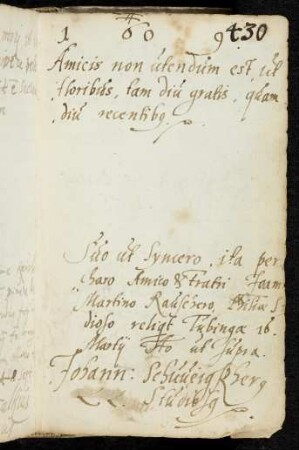 1 60 9
430
Amicis non utendum est, ut
floribus, tam diu gratis, quam
diu recentibq.
Suo ut Syncero, ita per
charo Amico & Fratri Joan
Martino Rauschero,
dioso reliqt Tubingæ 16.
Martij Ao ut supra.
Johann:
Studiosq